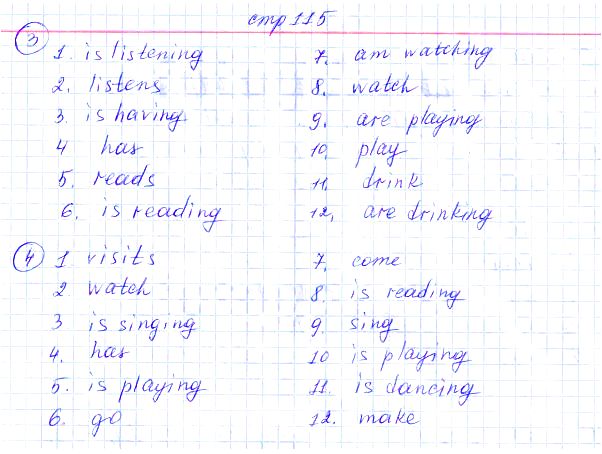 стр 115
3
1. is listening
2. listens
3. is having
4 has
5. reads
6. is reading
7. am watching
8. watch
9. are playing
10. play
11. drink
12. are drinking
4
1 visits
2 watch
3 is singing
4. has
5. is playing
6. go
7. come
8 is reading
9. sing
10 is playing
11. is dancing
12. make